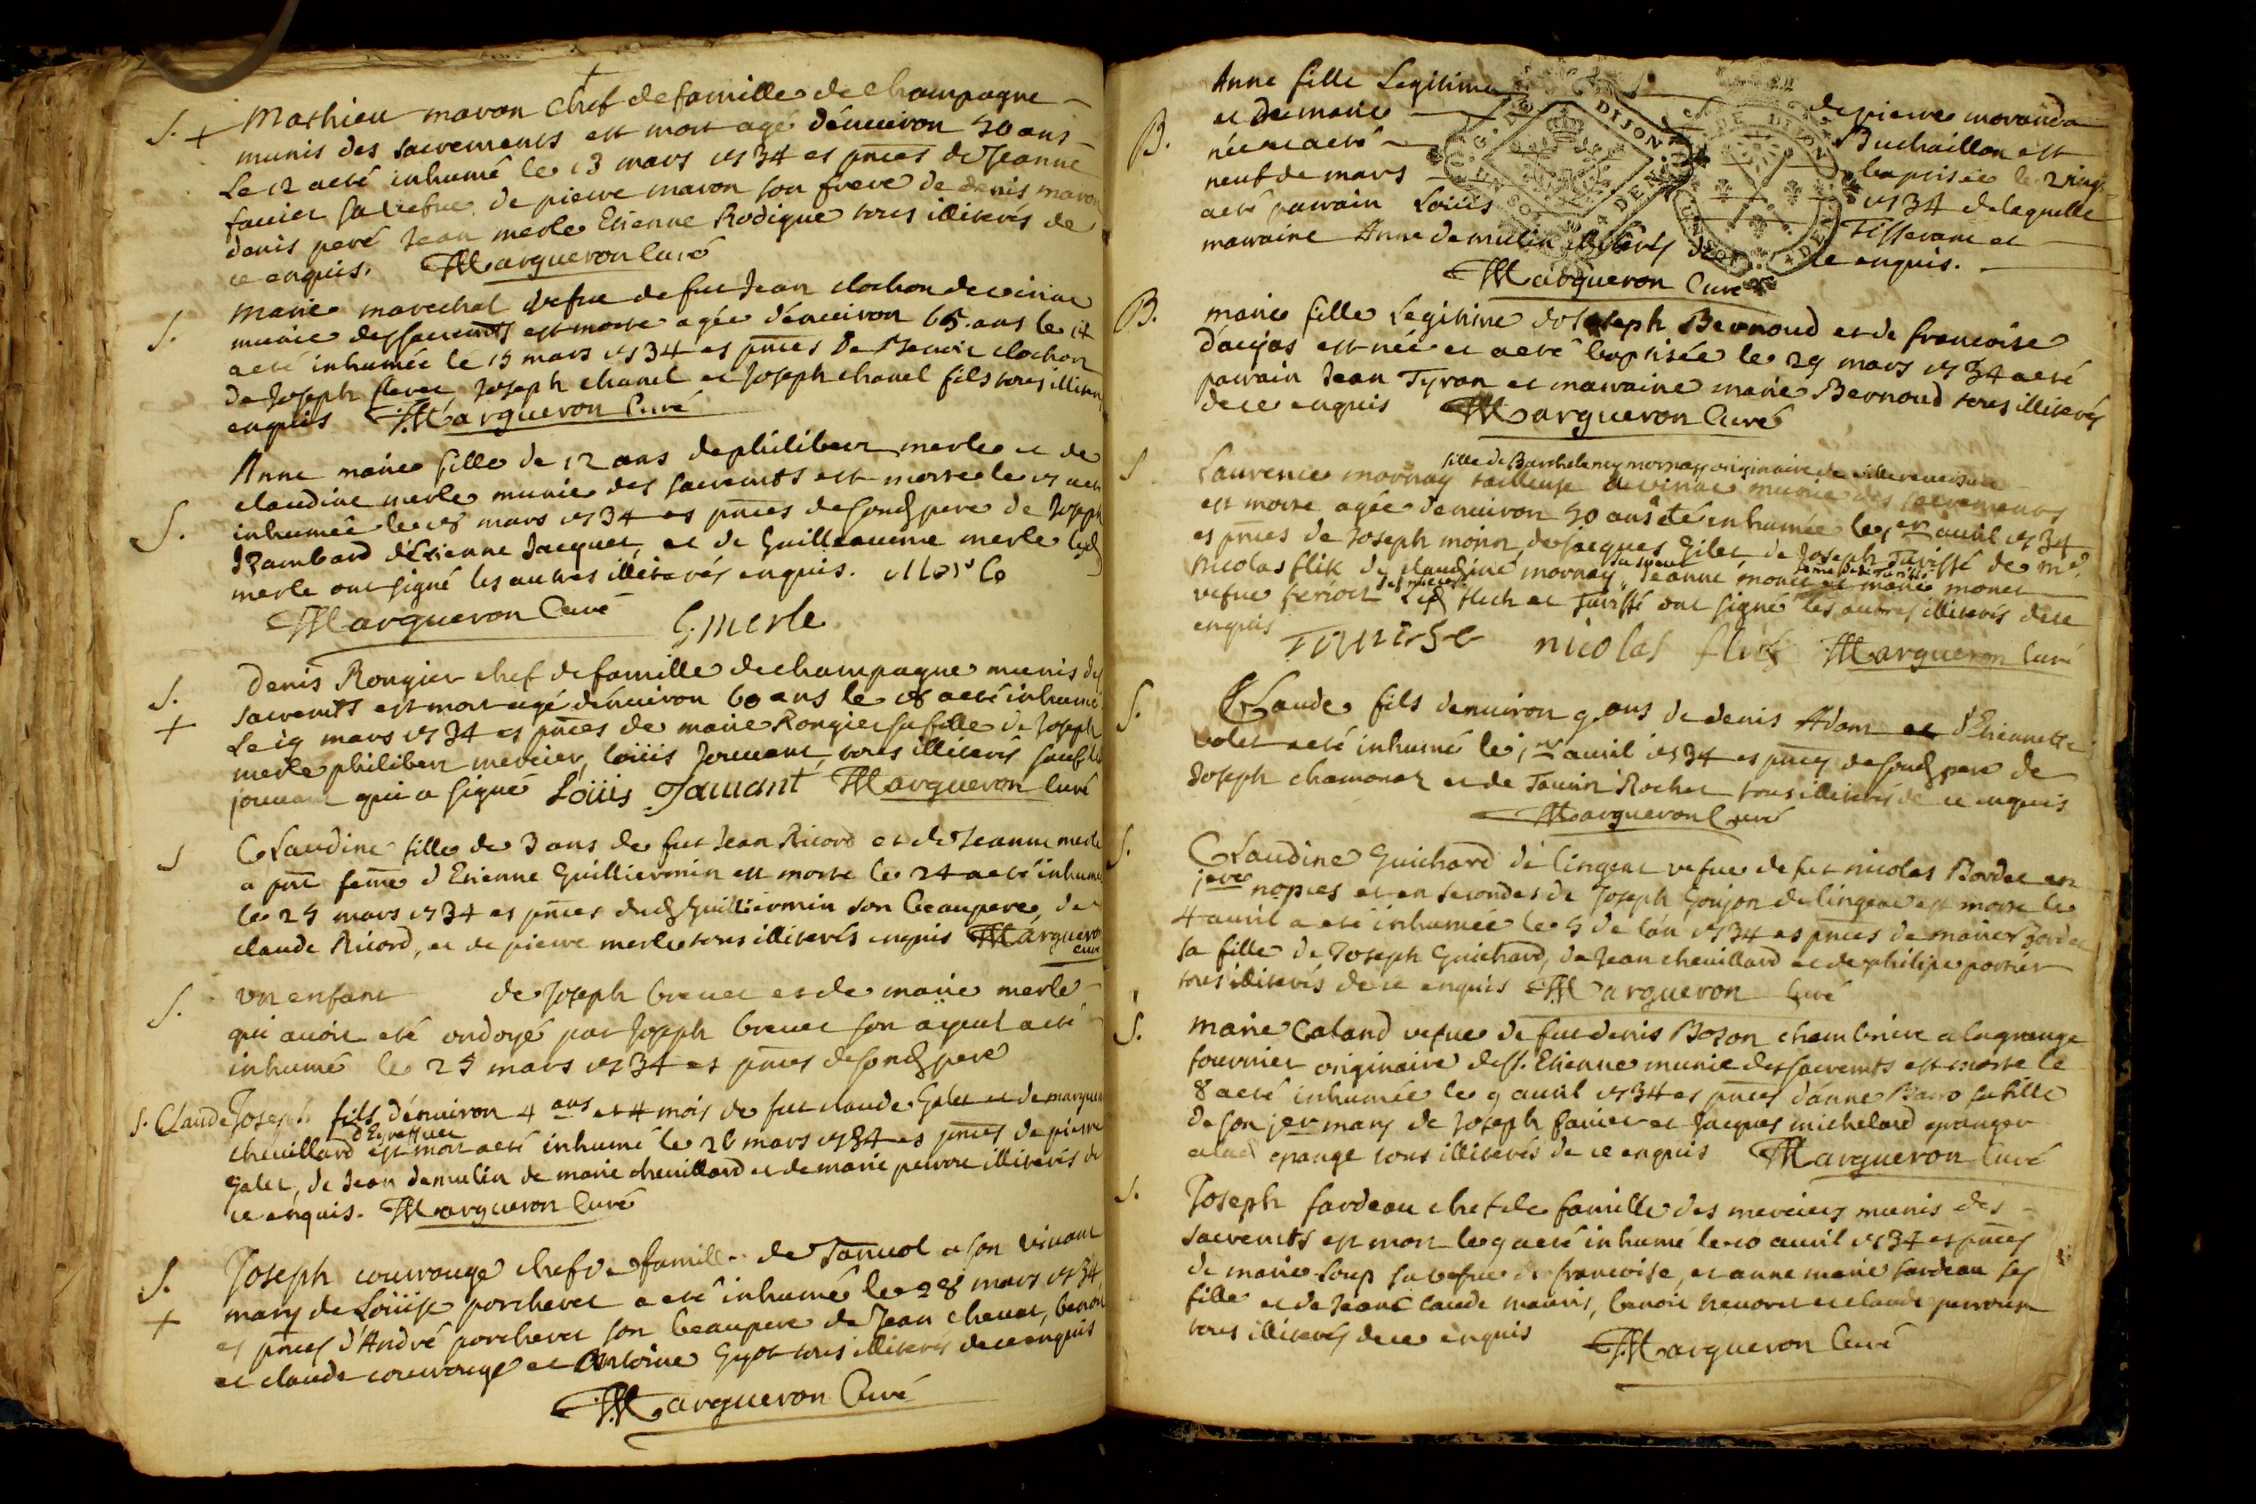 S. + Mathieu maron chef de famille de Champagne
munis des sacrements est mort agé d'énuiron 50 ans
Le 12 a eté inhumé le 13 mars 1734 es pnces de Jeanne
favier sa vefue de pierre maron son frere de denis maron
denis peré Jean merle Etienne Rodigue tous illiterés de
ce enquis. Margueron Curé
S. Marie marechal vefue de fut Jean clochon de
munie des sacremts est morte agée d'énuiron 65 ans le 14
a eté inhumée le 15 mars 1734 es pnces De Benoit clochon
de Joseph Joseph chanel et Joseph chanel fils tous
enquis Margueron Curé
Anne marie fille de 12 ans de philibert merle et de
claudine merle munie des sacremts est morte le 17 a eté
S. inhumée le 18 mars 1734 es pnces de sond pere de Joseph
Rambard d'Etienne Jacquet, et de Guilleaume merle lesd
merle ont signé les autres illiterés enquis.
Margueron Curé G. merle
S. + Denis Rongier chef de famille de champagne munis des
sacremts est mort agé d'énuiron 60 ans le 18 a eté inhumé
Le 19 mars 1734 es pnces de marie Rongier sa fille de Joseph
merle philibert mercier, Loüis Jouuant, tous illiterés sauf led
jouuant qui a signé Loüis Jauuant Margueron Curé
S Claudine fille de 3 ans de fut Jean Ricord et de Jeanne merle
a pnt feme d'Etienne Guilliermin est morte le 24 a eté inhumée
le 25 mars 1734 es pnces dud Guilliermin son beaupere, de
claude Ricord, et de pierre merle tous illiterés enquis Margueron
curé
S. vn enfant de Joseph breuet et de marie merle
qui auoit eté ondoyé par Joseph breuet son ayeul a eté
inhumé le 25 mars 1734 es pnces de sond pere
S. Claude Joseph fils d'énuiron 4 ans et 4 mois de fut claude Galet et de
cheuillard est mort a eté inhumé le 26 mars 1734 es pnces de pierre
Galet, de Jean demulin de marie cheuillard et de marie perrou illiterés de
ce enquis. Margueron Curé
S. + Joseph courrouge chef de famille de Januol a son viuant
mary de Loüise porcheret a eté inhumé le 28 mars 1734
es pnces d'André porcheret son beaupere de Jean cheuat, benoit
et claude courrouge et Antoine Gyot tous illiterés de ce enquis
Margueron Curé
Anne fille Legitime de pierre moranda
B. et De marie Buchaillon est
née et a eté baptisée le vingt
neuf de mars 1734 de laquelle
a eté parrain Loüis Tisserant et
marraine Anne demulin illiterés de ce enquis.
Margueron Curé
B. marie fille Legitime de Joseph Bernoud et de francoise
d'acijas est née et a eté baptisée le 29 mars 1734 a eté
parrain Jean Tyran et marraine marie Bernoud tous illiterés
de ce enquis Margueron Curé
fille de Barthelemy mornay originaire de
S Laurence mornay tailleuse munie des sacrements
est morte agée denuiron 50 ans a été inhumée le 1er auril 1734
es pnces de Joseph morin, de Jacques Gilet, de Joseph de me
Nicolas flik de claudine mornay sa soeur, Jeanne monet et marie monet
vefue ses nieces Lesd flick et ont signé les autres illiterés de ce
enquis nicolas flick Margueron Curé
S. Claude fils denuiron 9 ans de denis Adam et d'Etiennette
bolet a eté inhumé le 1er auril 1734 es pnces de sond pere de
Joseph chamonar et de Taurin Rochet tous illiterés de ce enquis
Margueron Curé
S. Claudine Guichard de lingeat vefue de fut nicolas Bordet en
1ere nopces et en secondes de Joseph Goujon de lingeat est morte le
4 auril a eté inhumée le 5 de l'an 1734 es pnces de marie Bordet
sa fille de Joseph Guichard, de Jean cheuillard et de philipe portier
tous illiterés de ce enquis Margueron Curé
S. Marie Caland vefue de fut denis Bozon chambriere a la grange
fournier originaire de St. Etienne munie des sacremts est morte le
8 a eté inhumée le 9 auril 1734 es pnces d'anne Baro sa fille
de son 1er mary de Joseph favier et Jacques michelard granger
a lad grange tous illiterés de ce enquis Margueron Curé
S. Joseph fardeau chef de famille des merciers munis des
sacremts est mort le 9 a eté inhumé le 10 auril 1734 es pnces
de marie Loup sa vefue de francoise, et anne marie fardeau ses
fille et de Jean Claude mauris, benoit neuoret et claude perroux
tous illiterés de ce enquis Margueron Curé